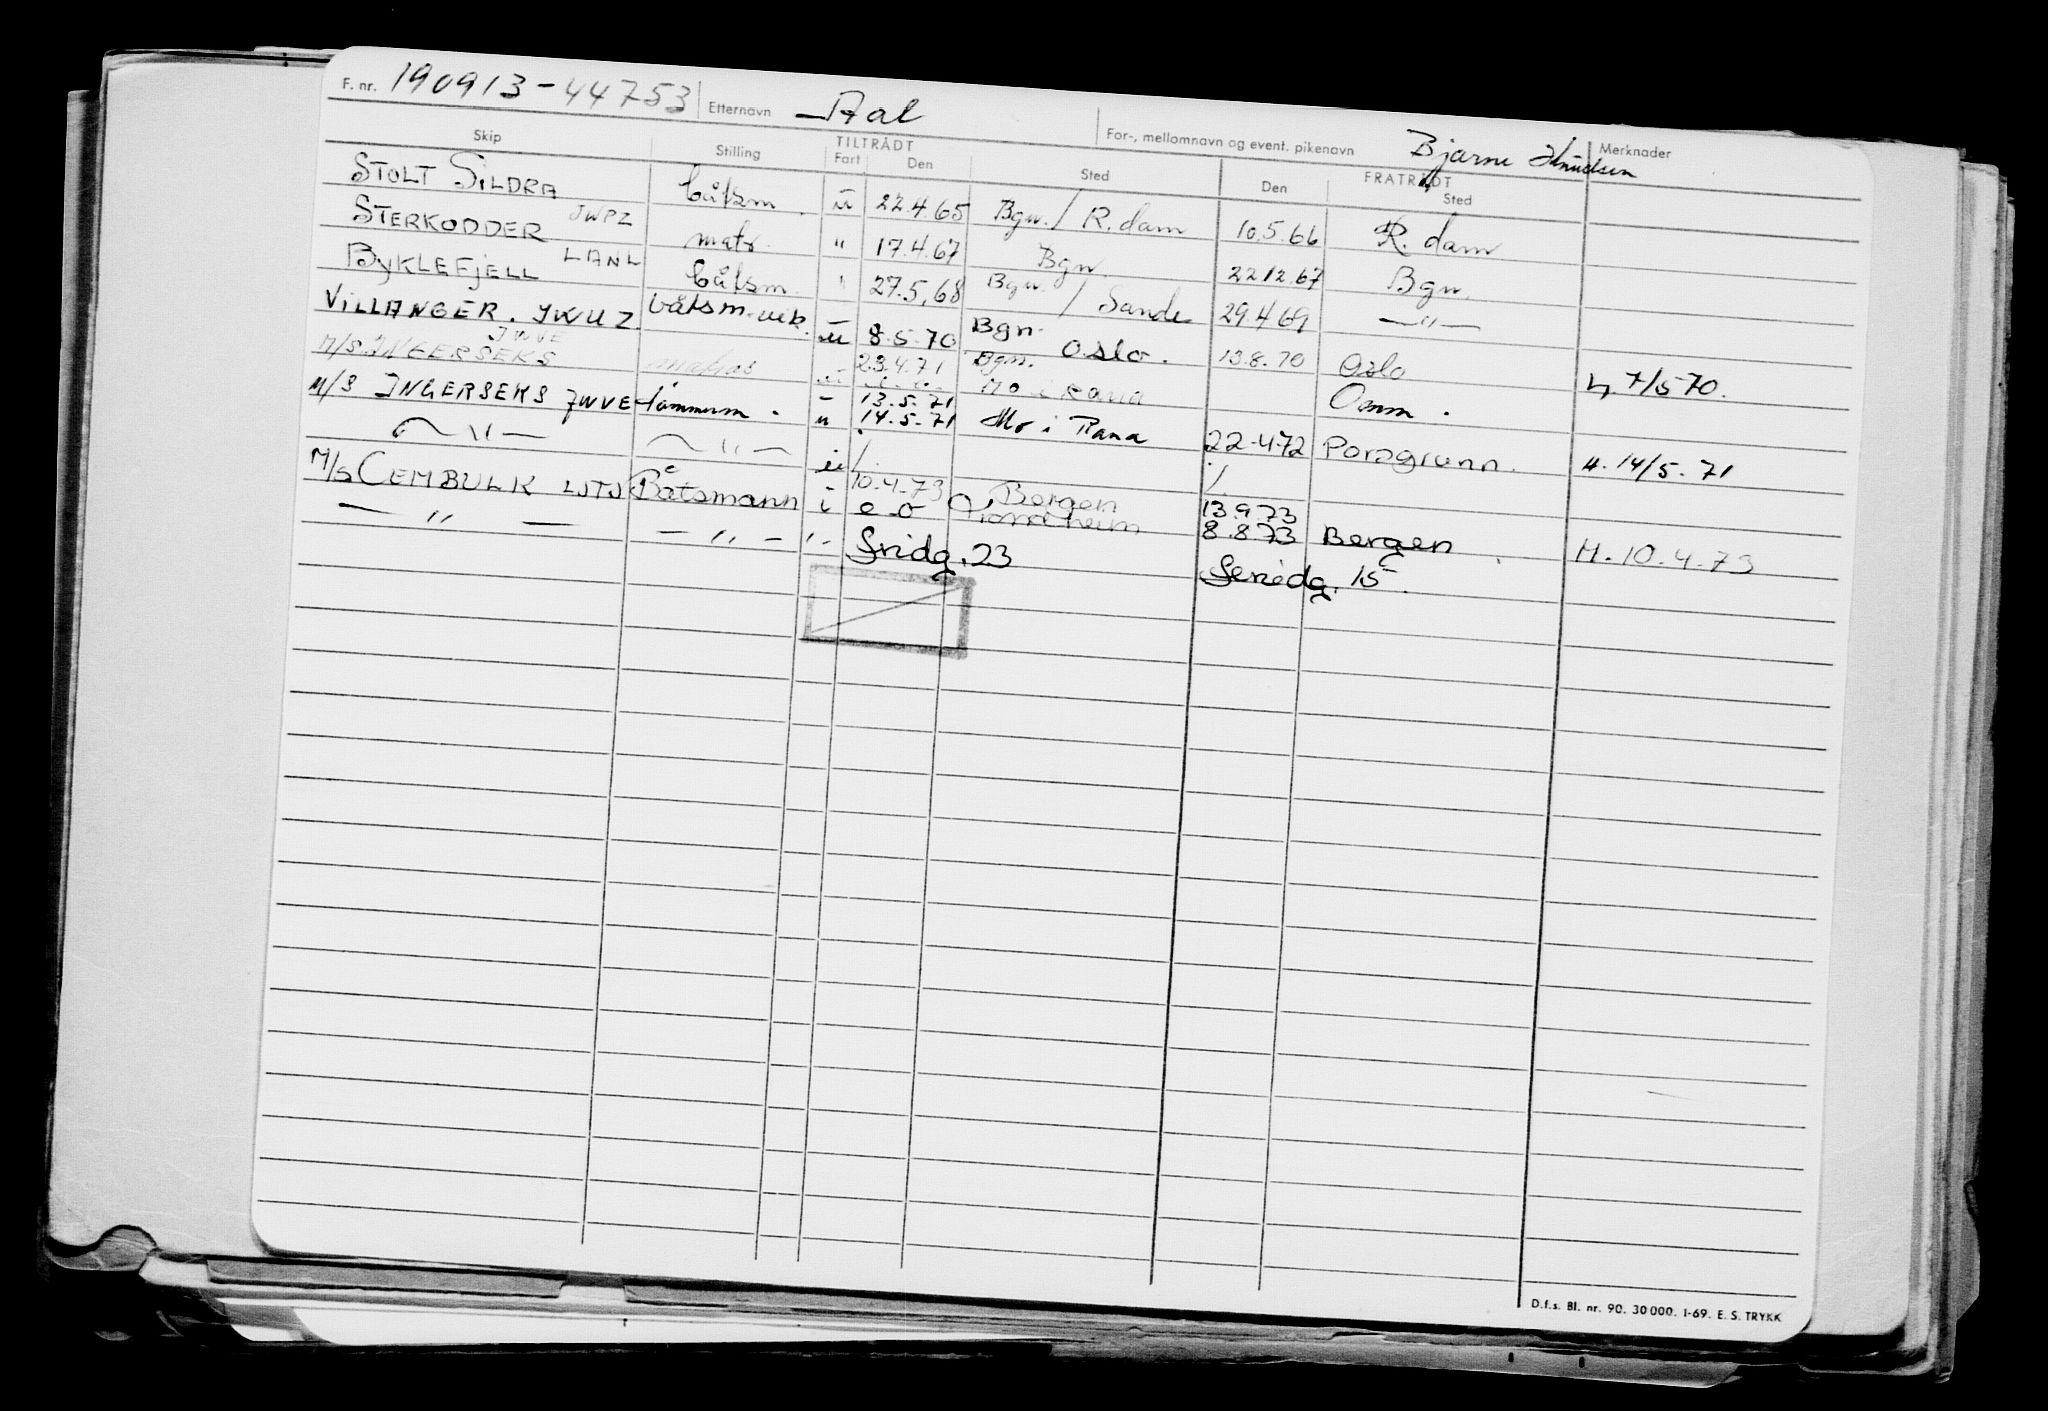 F. nr. 190913-44753 Etternavn Aal For-, mellomnavn og event. pikenavn Bjarne Knudsen
Skip Stilling TILTRÅDT Fart Den Sted FRATRÅDT Den Sted Merknader
STOLT SILDRA båtsm. u 22.4.65 Bgn. / R.dam 10.5.66 R. dam
STERKODDER JWPZ matr. " 17.4.67 Bgn. 22 12.67 Bgn.
BYKLEFJELL LANL båtsm. " 27.5,68 Bgn. / Sande 29.4 69 —"—
VILLANGER. JWUZ båtsm. u 8.5.70 Bgn. Oslo. 13.8.70 Oslo 7/5 70.
M/S. INGERSEKS JWVE matros 23.4.71 Bgn. Mo i Rana Omm.
M/S INGERSEKS JWVE tømmerm. - 13.5.71
—"— —"— u 14.5.71 Mo i Rana 22-4-72 Porsgrunn. H. 14/5. 71
M/S CEMBULK LJTJ Båtsmann i 10.4.73 Bergen 13.9.73
— " — — " — " - e-o Trondheim 8.8.73 Bergen H. 10.4.73
23 15
D.f.s. Bl. nr. 90. 30 000. 1-69. E. S. TRYKK